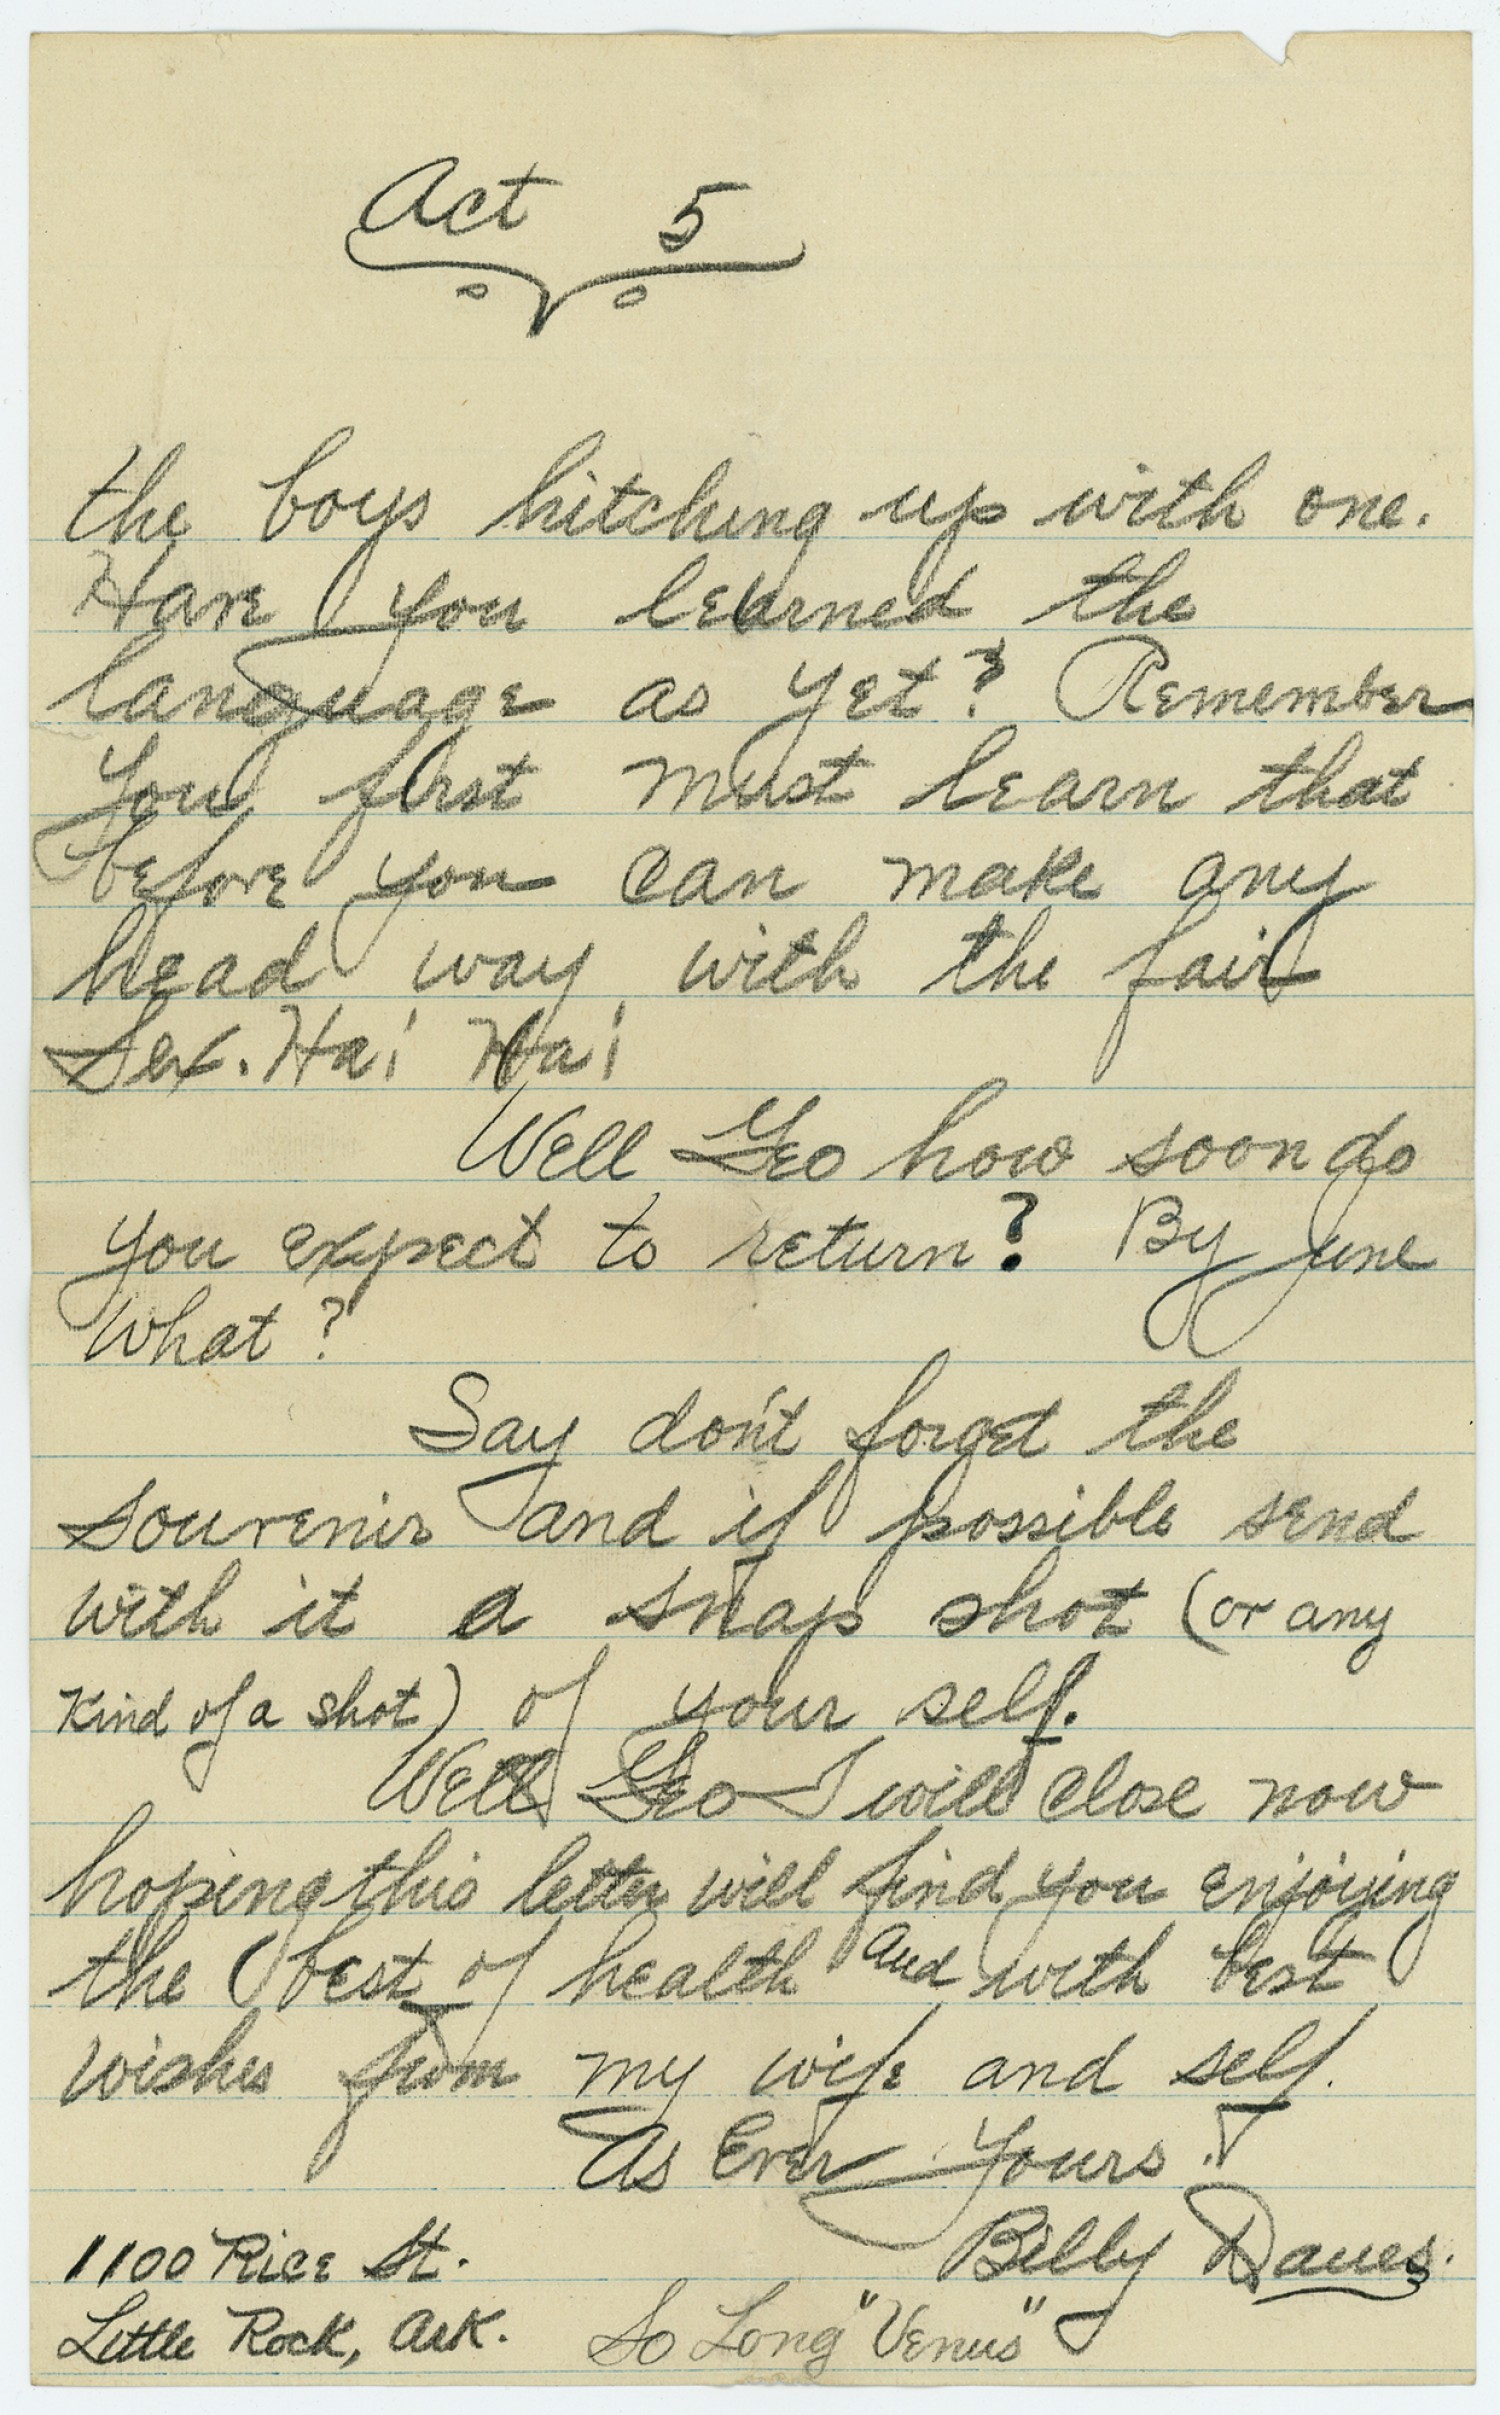 Act 5
the boys hitching up with one.
Have you learned the
language as yet? Remember
you first must learn that
before you can make any
head way with the fair
Sex. Ha! Ha!
Well Geo how soon do
you expect to return? By June
what?
Say don't forget the
souvenir and if possible send
with it a snap shot (or any
kind of a shot) of your self.
Well Geo I will close now
hoping this letter will find you enjoying
the best of health and with best
wishes from my wife and self.
As Ever Yours!
Billy Daues.
1100 Rice St.
Little Rock, Ark. So Long "Venus"